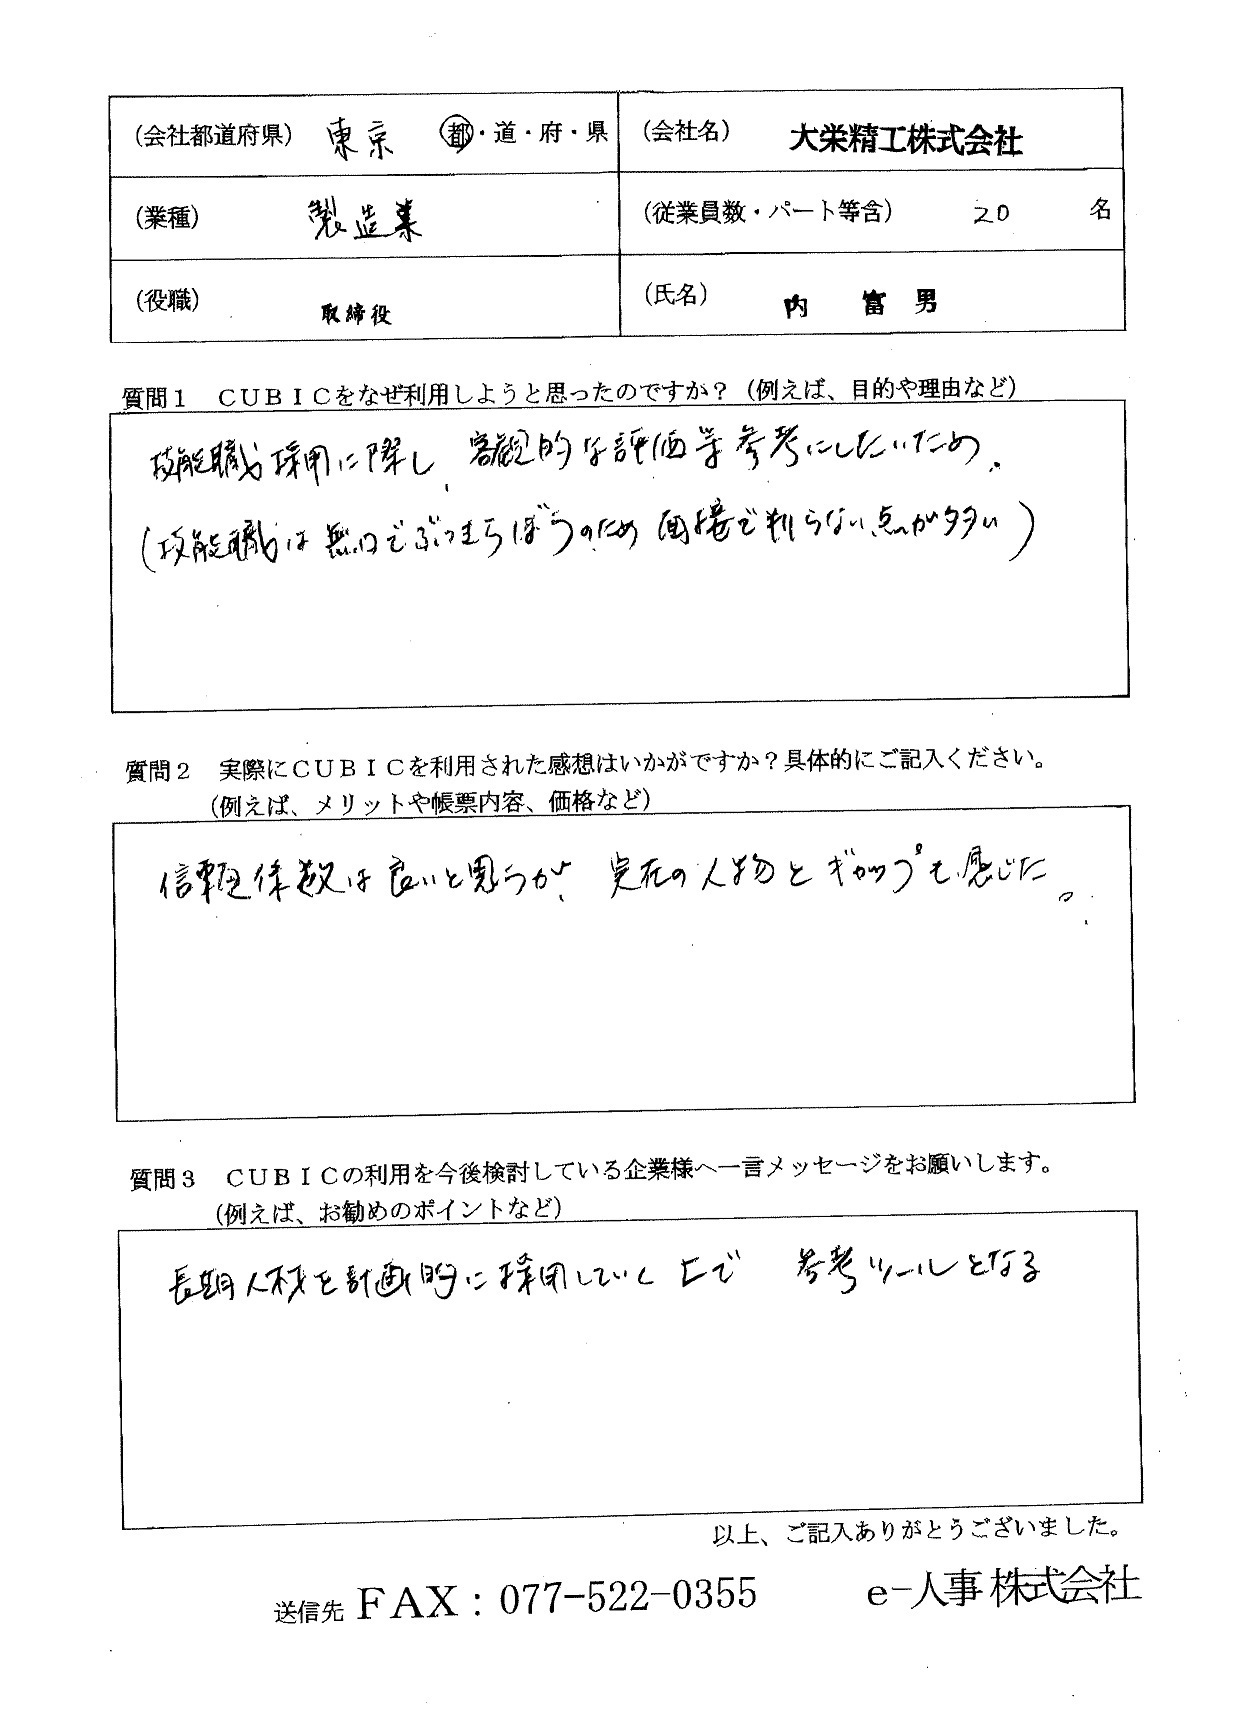 (会社都道府県) 東京 都・道・府・県 (会社名) 大栄精工株式会社
(業種) 製造業 (従業員数・パート等含) 20 名
(役職) 取締役 (氏名) 内 富男
質問1 CUBICをなぜ利用しようと思ったのですか?(例えば、目的や理由など)
技能職採用に際し、客観的な評価等参考にしたいため。
(技能職は無口でぶっきらぼうのため面接で判らない点が多い)
質問2 実際にCUBICを利用された感想はいかがですか?具体的にご記入ください。
(例えば、メリットや帳票内容、価格など)
信頼係数は良いと思うが、実在の人物とギャップも感じた。
質問3 CUBICの利用を今後検討している企業様へ一言メッセージをお願いします。
(例えば、お勧めのポイントなど)
長期人材を計画的に採用していく上で 参考ツールとなる
以上、ご記入ありがとうございました。
送信先 FAX:077-522-0355 e-人事株式会社